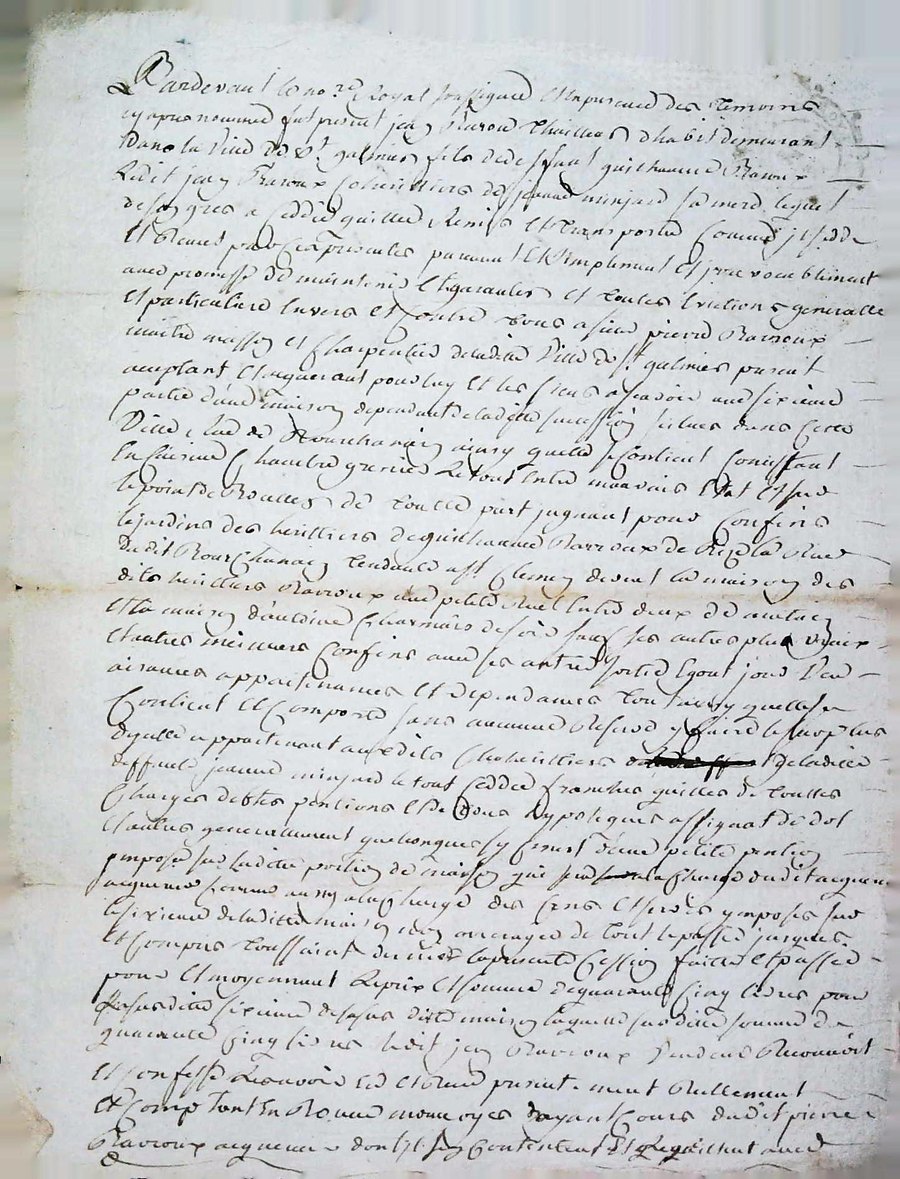 Pardevant le no.re Royal soussigné et en presence des temoins
cy apres nommes fut present jean Raroux thailleur d'habit demeurant
Dans la Ville de St galmier fils de deffunt guilhaume Raroux
Ledit jean Raroux coheritiers de jeanne minjard sa mere lequel
de son gres a ceddé quitté Remis et transporté comme il cedde
Et Remet par ces presentes purement et simplement et irrevocablement
avec promesse de maintenir et garantir et toutes evictions generalle
Et particuliere envers et Contre tous a sieur pierre Ravroux
maitre masson et Charpentier de ladite Ville de St galmier present
acceptant et acquerant pour luy et les siens a scavoir une sixieme
partie d'une maison dependant de ladite succession située dans cette
Ville, Rue de Bourchanain ainsy quelle se Contient Consistant
En Cuisine Chambre grenier Le tout en tres mauvais Etat et sur
le point de de toutte part jugnant pour Confins
le jardins des heritiers de guilhaume Ravroux de bize la Rue
Dudit Bourchanain tendant a St Clement devent la maison des
dits heritiers Ravroux une petite Ruel entre deux de matin
Et la maison d'antoine Charmais de soir sauf ses autres plus vrais
Et autres meilleurs Confins avec ses entrées sorties Egout jour Veu
aisances appartenances et dependances tout ainsy quelle se
Contient et Comporte sans aucunne Reserve y faire le surplus
d'ycelle appartenant auxdits Coheritiers de ladite
deffunte jeanne minjard le tout ceddé franches quittes de touttes
Charges debtes pentions et de tous hypoteques assignat de dot
Et autres generallement quelconques sy ce n'est d'une petite pention
imposé sur ladite portion de maison qui sera a la Charge dudit acquereur
acquereur comme aussy a la Charge des Cens et servis imposés sur
la sixieme de ladite maison non arreragée de tout le passé jusques
Et Compris toussaint dernier la presente Cession faitte et passée
pour et moyennant Le prix et somme de quarante Cinq livres pour
sixieme de sus ditte maison laquelle susditte somme de
quarante Cinq livres ledit jean Ravroux Vendeur Reconnoit
Et Confesse Recevoir presentement Reellement
Et Comptant En Bonne monnoyes ayant Cours dudit pierre
Ravroux acquereur dont il sen Contente Et Le quitte avec